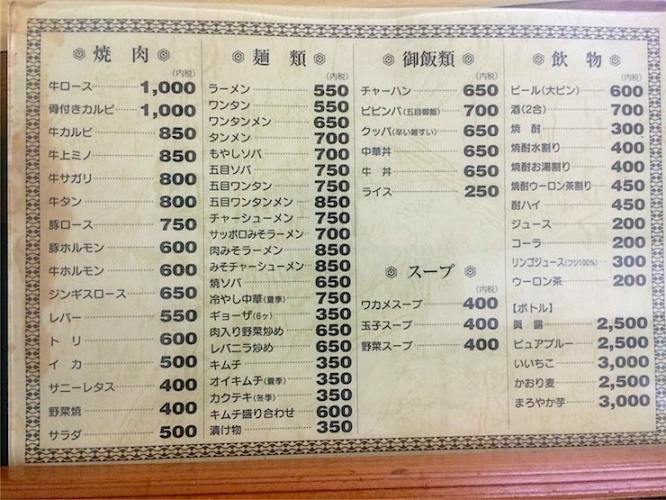 焼肉
(内税)
牛ロース 1,000
骨付きカルビ 1,000
牛カルビ 850
牛上ミノ 850
牛サガリ 800
牛タン 800
豚ロース 750
豚ホルモン 600
牛ホルモン 600
ジンギスロース 650
レバー 550
トリ 600
イカ 500
サニーレタス 400
野菜焼 400
サラダ 500
麺類
(内税)
ラーメン 550
ワンタン 550
ワンタンメン 650
タンメン 700
もやしソバ 700
五目ソバ 750
五目ワンタン 750
五目ワンタンメン 850
チャーシューメン 750
サッポロみそラーメン 700
肉みそラーメン 850
みそチャーシューメン 850
焼ソバ 650
冷やし中華(夏季) 750
ギョーザ(6ヶ) 350
肉入り野菜炒め 650
レバニラ炒め 650
キムチ 350
オイキムチ(夏季) 350
カクテキ(冬季) 350
キムチ盛り合わせ 600
漬け物 350
御飯類
(内税)
チャーハン 650
ビビンバ(五目御飯) 700
クッパ(辛い雑すい) 650
中華丼 650
牛丼 650
ライス 250
スープ
(内税)
ワカメスープ 400
玉子スープ 400
野菜スープ 400
飲物
(内税)
ビール(大ビン) 600
酒(2合) 700
焼酎 300
焼酎水割り 400
焼酎お湯割り 400
焼酎ウーロン茶割り 450
酎ハイ 450
ジュース 200
コーラ 200
リンゴジュース(フジ100%) 300
ウーロン茶 200
【ボトル】
眞露 2,500
ピュアブルー 2,500
いいちこ 3,000
かおり麦 2,500
まろやか芋 3,000